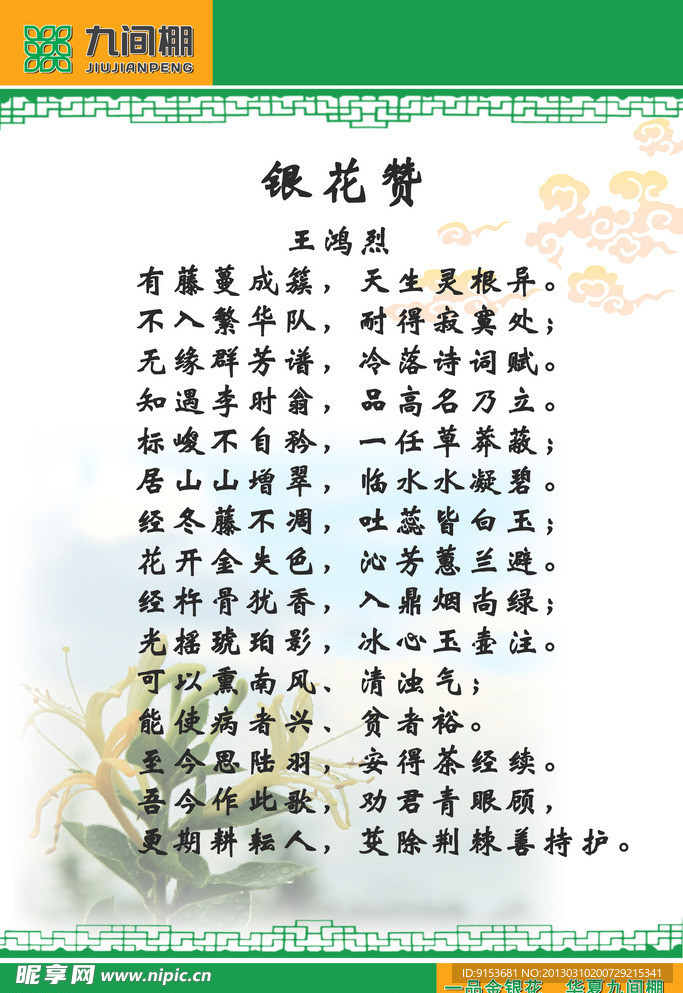 九间棚
JIUJIANPENG
银花赞
王鸿烈
有藤蔓成簇，天生灵根异。
不入繁华队，耐得寂寞处；
无缘群芳谱，冷落诗词赋。
知遇李时翁，品高名乃立。
标峻不自矜，一任草莽蔽；
居山山增翠，临水水凝碧。
经冬藤不凋，吐蕊皆白玉；
花开金失色，沁芳蕙兰避。
经杵骨犹香，入鼎烟尚绿；
光摇琥珀影，冰心玉壶注。
可以熏南风、清浊气；
能使病者兴、贫者裕。
至今思陆羽，安得茶经续。
吾今作此歌，劝君青眼顾，
更期耕耘人，芟除荆棘善持护。
昵享网 www.nipic.cn
ID:9153681 NO:20130310200729215341
一品金银花 华夏九间棚